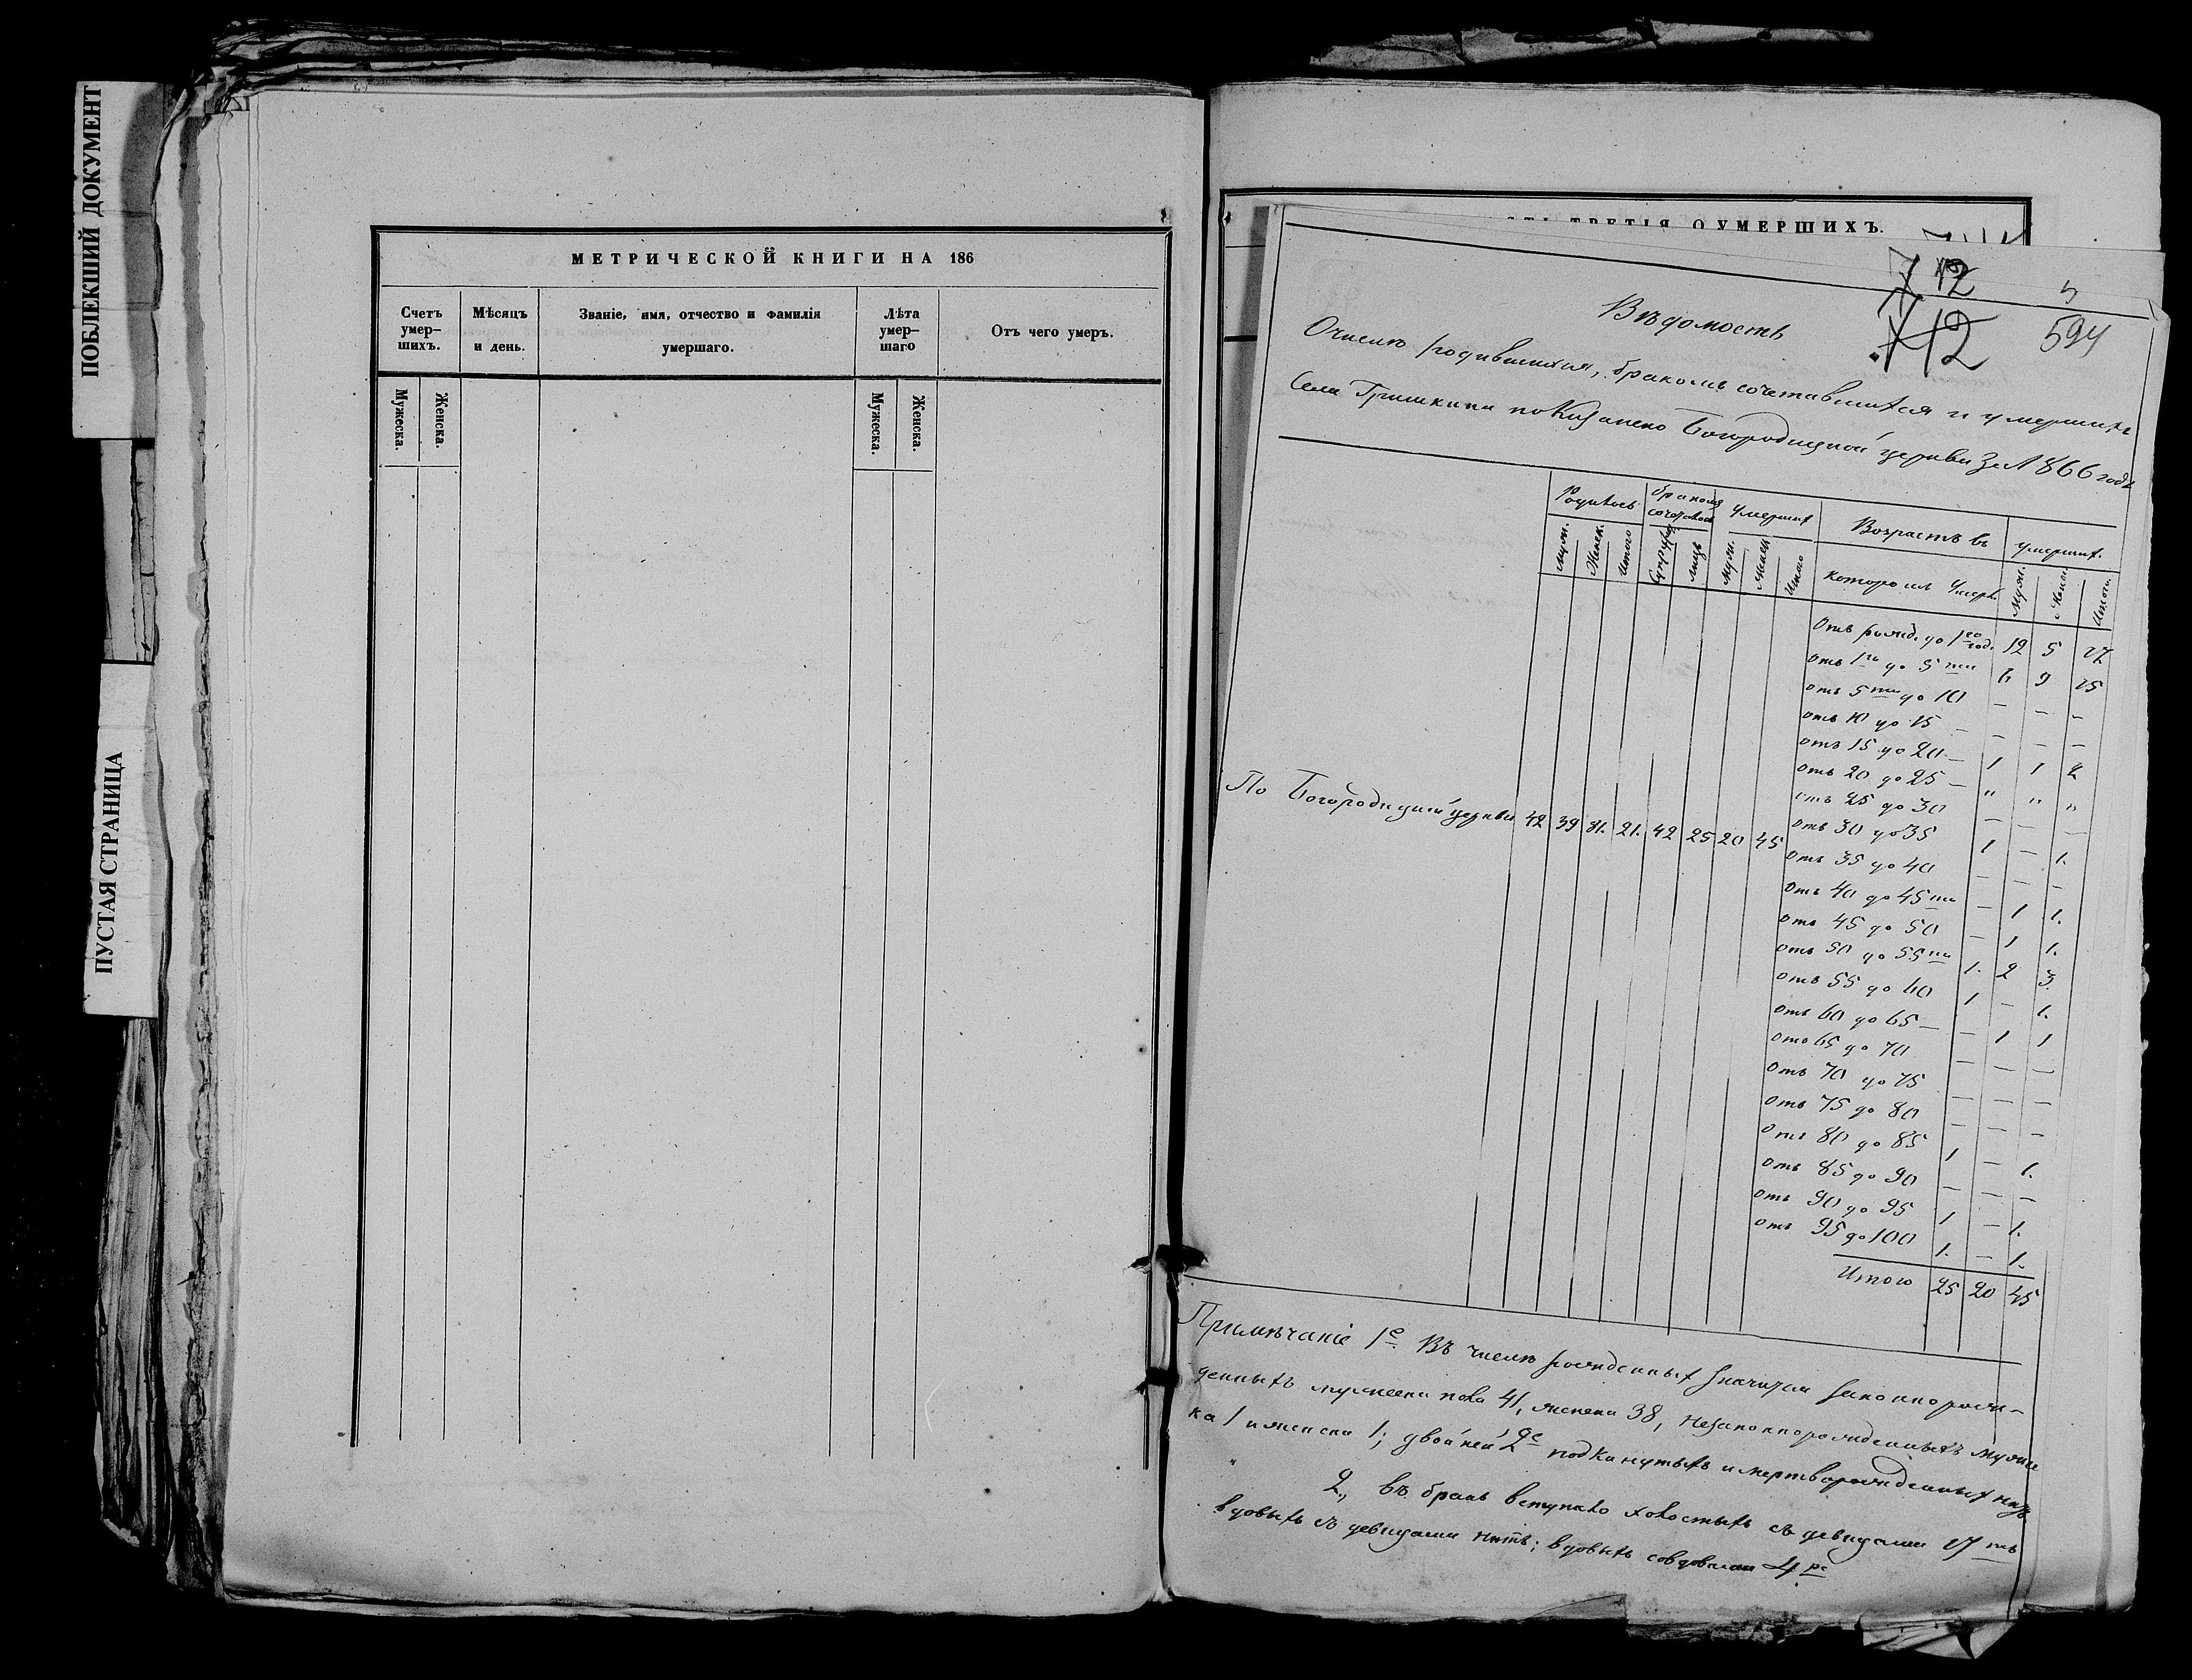 ПОБЛЕКШИЙ ДОКУМЕНТ
ПУСТАЯ СТРАНИЦА
МЕТРИЧЕСКОЙ КНИГИ НА 186
Счетъ умер-шихъ. Мѣсяцъ и день. Званіе, имя, отчество и фамилія умершаго. Лѣта умер-шаго Отъ чего умеръ.
Мужеска. Женска. Мужеска. Женска.
ТРЕТІЯ О УМЕРШИХЪ.
712
712 594
Вѣдомость
О числѣ родившихся, бракомъ сочетавшихся и умершихъ
Села Гришкина по Казанско Богородицкой церкви за 1866 годъ
Родилось бракомъ Умершихъ Возрастъ въ умершихъ.
муж. Женск. Итого лицъ муж. женск. Итого которомъ Умерли муж. Женск. Итого.
Отъ рожд. до 1го год. 12 5 17
отъ 1го до 5ти 6 9 15
отъ 5ти до 10 — — —
отъ 10 до 15 — — — —
отъ 15 до 20 — 1 1 2
отъ 20 до 25 — " " "
отъ 25 до 30 — — —
отъ 30 до 35 1 — 1.
По Богородицкой церкви 42 39 81. 21. 42 25 20 45
отъ 35 до 40 — — —
отъ 40 до 45ти — 1 1.
отъ 45 до 50 — 1 1.
отъ 50 до 55ти 1. 2 3
отъ 55 до 60 1 — 1.
отъ 60 до 65 — — 1 1
отъ 65 до 70 — — —
отъ 70 до 75 — — —
отъ 75 до 80 — — —
отъ 80 до 85 1 — 1.
отъ 85 до 90 — — —
отъ 90 до 95 1 — 1.
отъ 95 до 100 1. — 1.
Итого 25 20 45
Примѣчаніе 1е. Въ числѣ рожденныхъ значатся законнорож-
денныхъ мужеска пола 41, женска 38, незаконнорожденныхъ муже
ка 1 и женска 1; двойней 2е подкинутыхъ и мертворожденныхъ нѣтъ
2., въ бракъ вступило холостыхъ съ дѣвицами 17ть
вдовыхъ съ дѣвицами нѣтъ; вдовыхъ со вдовами 4ре